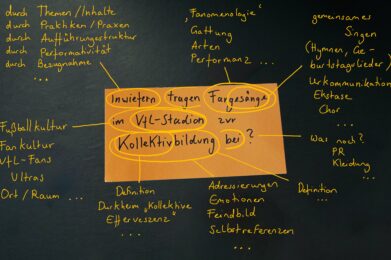 durch Themen/Inhalte
durch Praktiken/Praxen
durch Aufführungsstruktur
durch Performativität
durch Bezugnahme
...
„Fanomenologie"
Gattung
Arten
Performanz ...
gemeinsames
Singen
(Hymnen, Ge-
burtstagslieder)
Urkommunikation
Ekstase
Chor
...
Inwiefern tragen Fangesänge
im VfL-Stadion zur
Kollektivbildung bei?
Fußballkultur
Fankultur
VfL-Fans
Ultras
Ort/Raum ...
Was noch?
PR
Kleidung
...
Definition
Durkheim „Kollektive
Efferveszenz"
...
Adressierungen
Emotionen
Feindbild
Selbstreferenzen
...
Definition
...